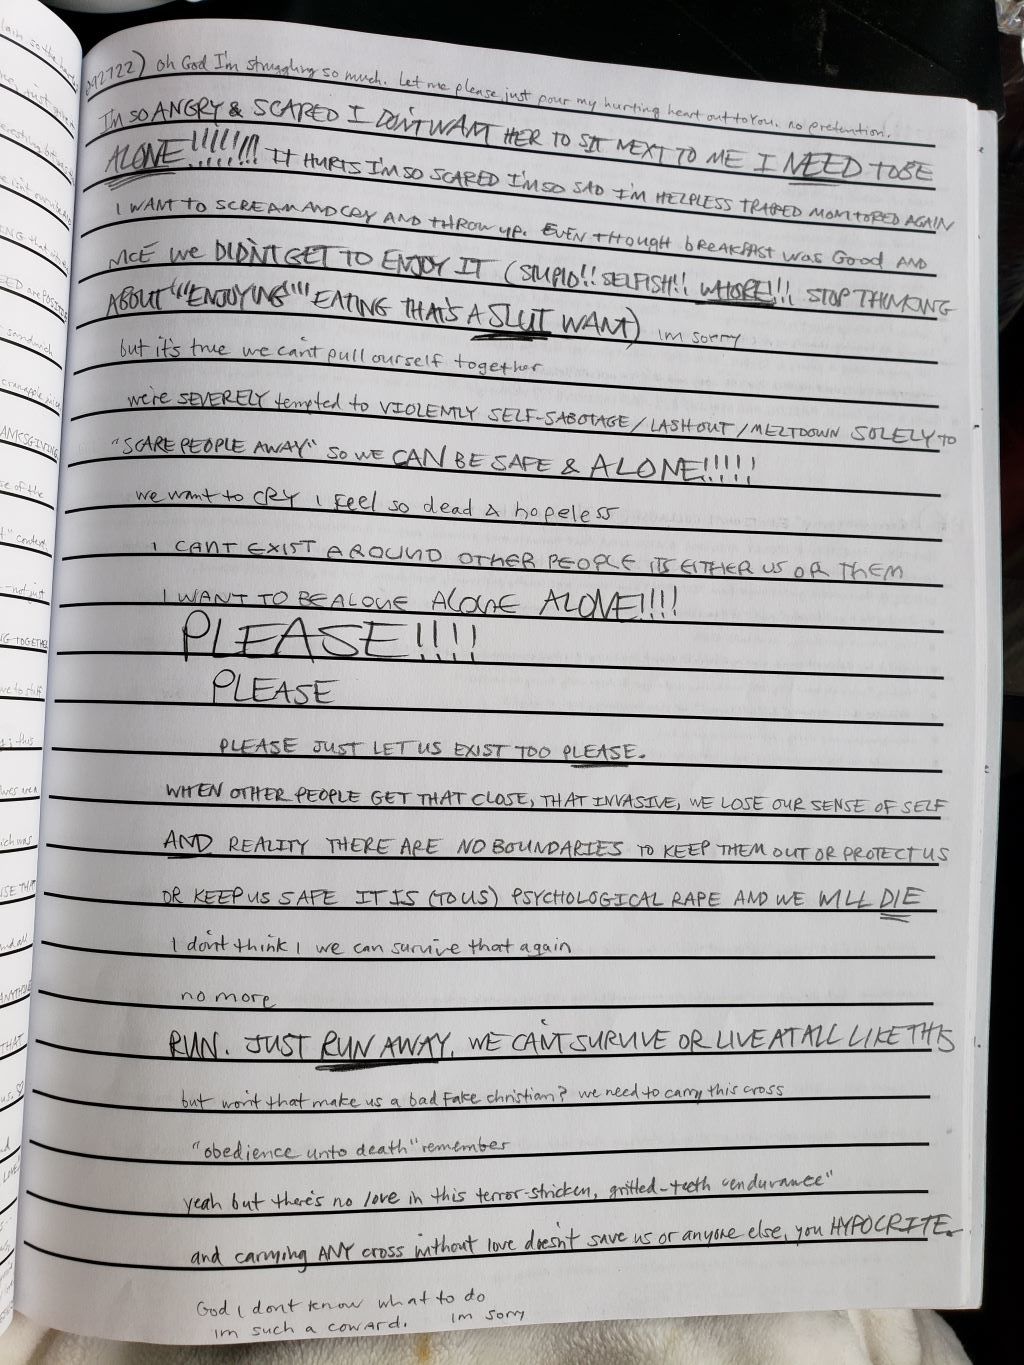 092722) oh God I'm struggling so much. Let me please just pour my hurting heart out to You. no pretention.
I'M SO ANGRY & SCARED I DON'T WANT HER TO SIT NEXT TO ME I NEED TO BE
ALONE!!!!!!!!! IT HURTS I'M SO SCARED I'M SO SAD I'M HELPLESS TRAPPED MONITORED AGAIN
I WANT TO SCREAM AND CRY AND THROW UP. EVEN THOUGH BREAKFAST WAS GOOD AND
NICE WE DIDN'T GET TO ENJOY IT (STUPID!! SELFISH!! WHORE!!! STOP THINKING
ABOUT """ENJOYING""" EATING THAT'S A SLUT WANT) im sorry
but it's true we can't pull ourself together
we're SEVERELY tempted to VIOLENTLY SELF-SABOTAGE/LASH OUT/MELTDOWN SOLELY to
"SCARE PEOPLE AWAY" SO WE CAN BE SAFE & ALONE!!!!!
we want to CRY I feel so dead & hopeless
I CANT EXIST AROUND OTHER PEOPLE ITS EITHER US OR THEM
I WANT TO BE ALONE ALONE ALONE!!!!
PLEASE!!!!
PLEASE
PLEASE JUST LET US EXIST TOO PLEASE.
WHEN OTHER PEOPLE GET THAT CLOSE, THAT INVASIVE, WE LOSE OUR SENSE OF SELF
AND REALITY THERE ARE NO BOUNDARIES TO KEEP THEM OUT OR PROTECT US
OR KEEP US SAFE IT IS (TO US) PSYCHOLOGICAL RAPE AND WE WILL DIE
I don't think I we can survive that again
no more
RUN. JUST RUN AWAY. WE CAN'T SURVIVE OR LIVE AT ALL LIKE THIS
but won't that make us a bad fake christian? we need to carry this cross
"obedience unto death" remember
yeah but there's no love in this terror-stricken, gritted-teeth "endurance"
and carrying ANY cross without love doesn't save us or anyone else, you HYPOCRITE.
God I dont know what to do
im such a coward. im sorry